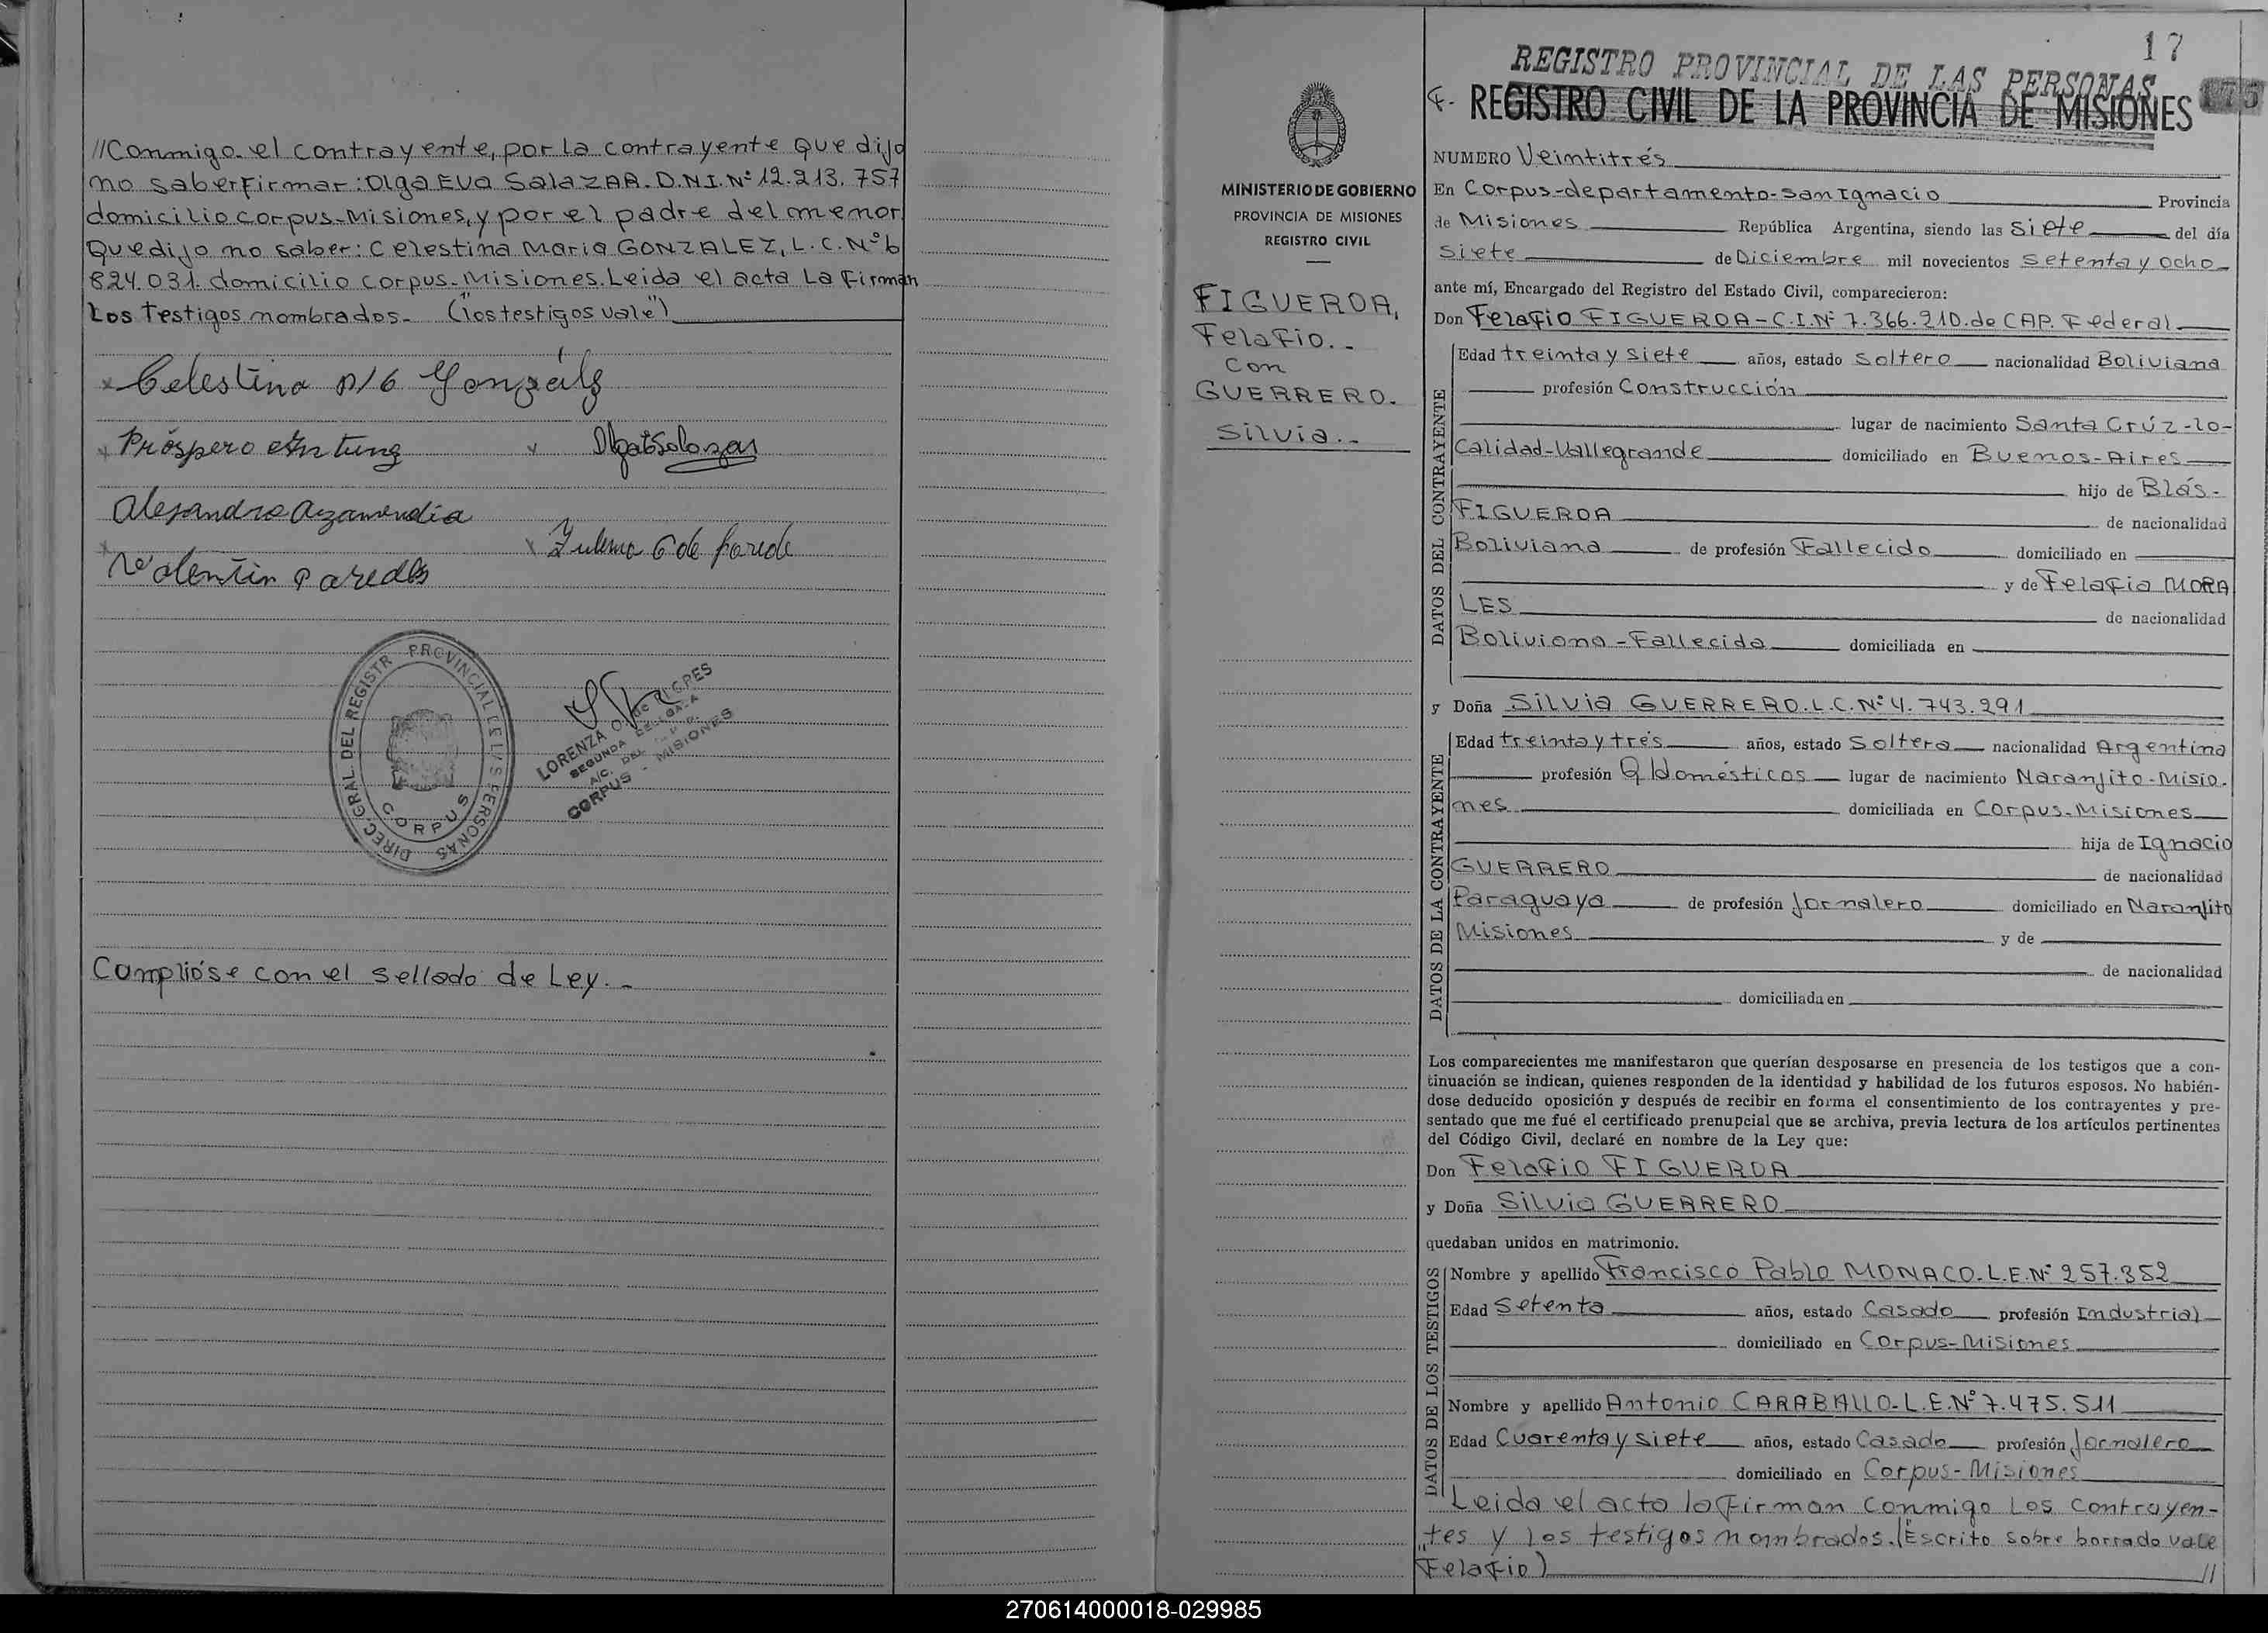 //Conmigo el contrayente, por la contrayente que dijo
no saber firmar: Olga Eva SALAZAR. D.N.I. Nº 12.213.757
domicilio Corpus-Misiones, y por el padre del menor
Que dijo no saber: Celestina Maria GONZALEZ, L.C. Nº 6
824.031. domicilio Corpus-Misiones. Leida el acta La Firman
Los Testigos nombrados- ("los testigos vale")
Celestina
Próspero
Alejandro
Valentin Paredes
DIREC. GRAL. DEL REGISTR PROVINCIAL DE LAS PERSONAS
CORPUS
LORENZA
SEGUNDA
A/C. DEL
CORPUS - MISIONES
Cumplióse con el sellado de Ley.-
17
REGISTRO PROVINCIAL DE LAS PERSONAS
REGISTRO CIVIL DE LA PROVINCIA DE MISIONES
MINISTERIO DE GOBIERNO
PROVINCIA DE MISIONES
REGISTRO CIVIL
FIGUEROA,
Felafio.-
Con
GUERRERO.
Silvia.-
NUMERO Veintitrés
En Corpus-departamento-San Ignacio Provincia
de Misiones República Argentina, siendo las Siete del día
Siete de Diciembre mil novecientos setenta y ocho
ante mí, Encargado del Registro del Estado Civil, comparecieron:
Don Felafio FIGUEROA-C.I.Nº 7.366.210.de CAP. Federal
DATOS DEL CONTRAYENTE
Edad treinta y siete años, estado Soltero nacionalidad Boliviana
profesión Construcción
lugar de nacimiento Santa Crúz-lo-
Calidad-Vallegrande domiciliado en Buenos-Aires
hijo de Blás-
FIGUEROA de nacionalidad
Boliviana de profesión Fallecido domiciliado en
y de Felafia MORA
LES de nacionalidad
Boliviana-Fallecida domiciliada en
y Doña Silvia GUERRERO.L.C.Nº 4.743.291
DATOS DE LA CONTRAYENTE
Edad treinta y trés años, estado Soltera nacionalidad Argentina
profesión Q/domésticos lugar de nacimiento Naranjito-Misio-
nes domiciliada en Corpus-Misiones
hija de Ignacio
GUERRERO de nacionalidad
Paraguaya de profesión Jornalero domiciliado en Naranjito
Misiones y de
de nacionalidad
domiciliada en
Los comparecientes me manifestaron que querían desposarse en presencia de los testigos que a con-
tinuación se indican, quienes responden de la identidad y habilidad de los futuros esposos. No habién-
dose deducido oposición y después de recibir en forma el consentimiento de los contrayentes y pre-
sentado que me fué el certificado prenupcial que se archiva, previa lectura de los artículos pertinentes
del Código Civil, declaré en nombre de la Ley que:
Don Felafio FIGUEROA
y Doña Silvia GUERRERO
quedaban unidos en matrimonio.
DATOS DE LOS TESTIGOS
Nombre y apellido Francisco Pablo MONACO.L.E.Nº 257.352
Edad Setenta años, estado Casado profesión Industrial
domiciliado en Corpus-Misiones
Nombre y apellido Antonio CARABALLO-L.E.Nº 7.475.511
Edad Cuarenta y siete años, estado Casado profesión Jornalero
domiciliado en Corpus-Misiones
Leida el acta la firman conmigo Los contrayen-
tes y los testigos nombrados.(Escrito sobre borrado vale
Felafio) //
270614000018-029985